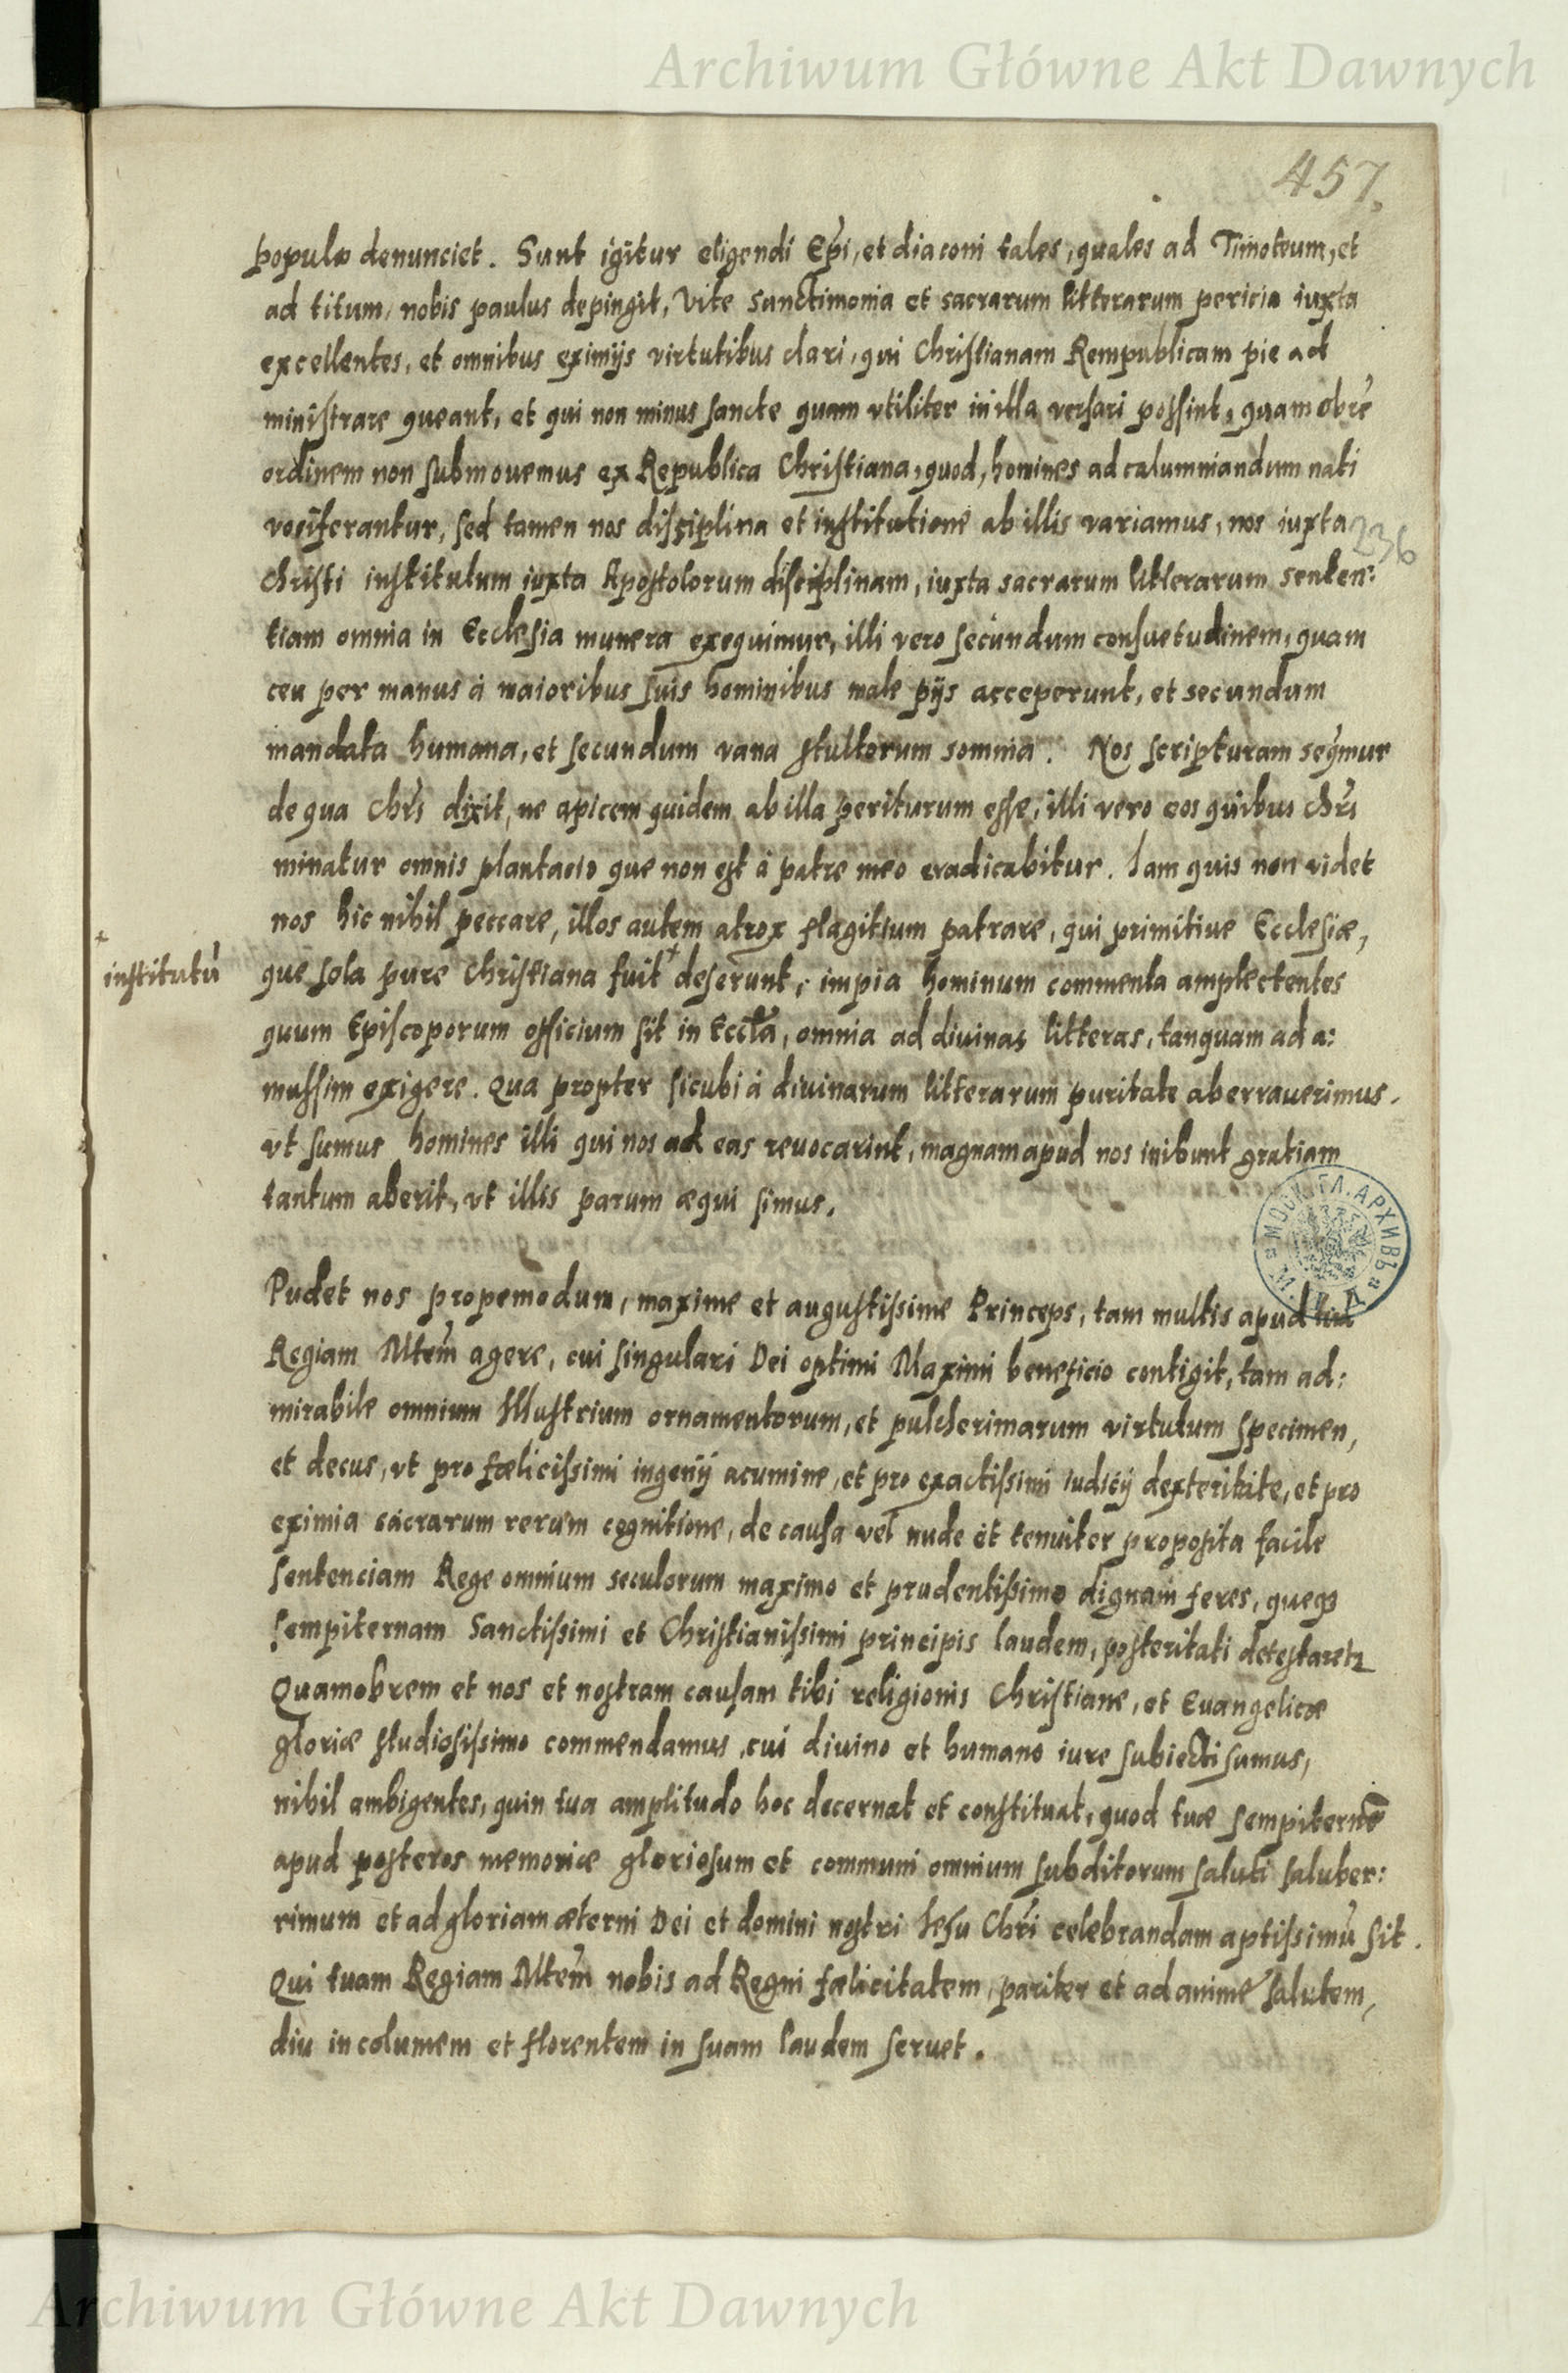 Archiwum Główne Akt Dawnych
457.
populo denunciet. Sunt igitur eligendi Epi, et diaconi tales, quales ad Timoteum, et
ad titum, nobis paulus depingit, Vite sanctimonia et sacrarum litterarum pericia iuxta
excellentes, et omnibus eximijs virtutibus clari, qui Christianam Rempublicam pie ad
ministrare queant, et qui non minus sancte quam vtiliter in illa versari possint, quam obrē
ordinem non submouemus ex Republica Christiana, quod, homines ad calumniandum nati
vociferantur, sed tamen nos disciplina et institutione ab illis variamus, nos iuxta
236
christi institutum iuxta Apostolorum disciplinam, iuxta sacrarum litterarum senten:
tiam omnia in Ecclesia munera exequimur, illi vero secundum consuetudinem, quam
ceu per manus à maioribus suis hominibus male pijs acceperunt, et secundum
mandata humana, et secundum vana stultorum somnia. Nos scripturam seq̃mur
de qua Chr̃s dixit, ne apicem quidem ab illa periturum esse, illi vero eos quibus chr̃s
minatur omnis plantacio que non est à patre meo eradicabitur. Iam quis non videt
nos hic nihil peccare, illos autem atrox flagitium patrare, qui primitiue Ecclesiæ,
+
institutū
que sola pure Christiana fuit + deserunt, impia hominum commenta amplectentes
quum Episcoporum officium sit in Eccła, omnia ad diuinas litteras, tanquam ad a:
mussim exigere. Qua propter sicubi à diuinarum litterarum puritate aberrauerimus.
vt sumus homines illi qui nos ad eas reuocarint, magnam apud nos inibunt gratiam
tantum aberit, vt illis parum æqui simus.
Pudet nos propemodum, maxime et augustissime Princeps, tam multis apud
Regiam Mtem̃ agere, cui singulari Dei optimi Maximi beneficio contigit, tam ad:
mirabile omnium Illustrium ornamentorum, et pulcherimarum virtutum specimen,
et decus, vt pro fœlicissimi ingenij acumine, et pro exactissimi iudicij dexteritate, et pro
eximia sacrarum rerum cognitione, de causa vel nude et tenuiter proposita facile
sentenciam Rege omnium seculorum maximo et prudentissimo dignam feres, queq3
sempiternam Sanctissimi et Christianissimi principis laudem, posteritati detestaretr
Quamobrem et nos et nostram causam tibi religionis Christiane, et Euangelicæ
gloriæ studiosissimo commendamus, cui diuino et humano iure subiecti sumus,
nihil ambigentes, quin tua amplitudo hoc decernat et constituat, quod tuæ sempiternē
apud posteros memoriæ gloriosum et communi omnium subditorum saluti saluber:
rimum et ad gloriam æterni Dei et domini nostri Iesu Chr̃i celebrandam aptissimū sit.
Qui tuam Regiam Mtem̃ nobis ad Regni fœlicitatem, pariter et ad anime salutem,
diu incolumem et florentem in suam laudem seruet.
МОСК. ГЛ. АРХИВЪ
Archiwum Główne Akt Dawnych